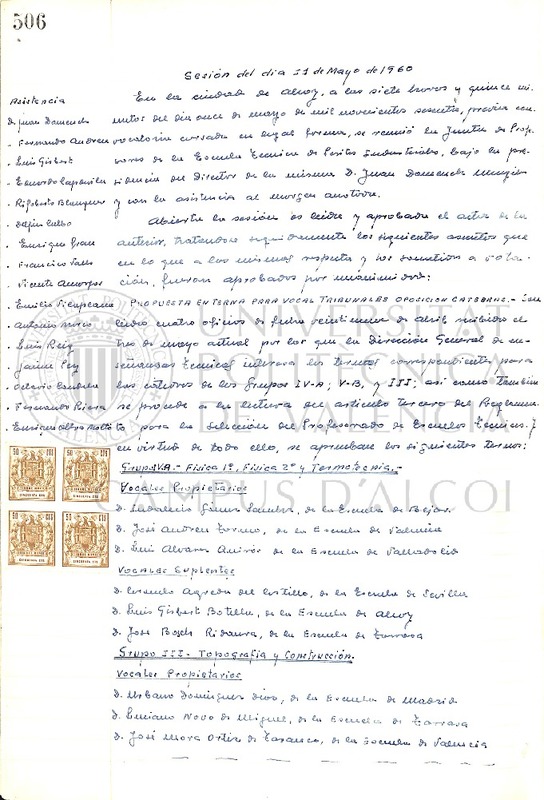 506
Sesión del dia 11 de Mayo de 1960
Asistencia
D. Juan Domenech
. Fernando Andreu
. Luis Gisbert
. Eduardo Capdevila
. Rigoberto
. Enrique Grau
. Francisco Valls
. Vicente Amorós
. Antonio
. Luis Reig
. Jaime Rey
. Fernando Riera
En la ciudad de Alcoy, a las siete horas y quince mi-
nutos del dia once de mayo de mil novecientos sesenta, previa con-
vocatoria cursada en legal forma, se reunió la Junta de Profe-
sores de la Escuela Técnica de Peritos Industriales, bajo la pre-
sidencia del Director de la misma D. Juan Domenech
y con la asistencia al margen anotada.
Abierta la sesión es leida y aprobada el acta de la
anterior, tratandose seguidamente los siguientes asuntos que
en lo que a los mismos respecta y sometidos a vota-
ción, fueron aprobados por unanimidad:
PROPUESTA EN TERNA PARA VOCAL TRIBUNALES OPOSICION CATEDRAS.- Son
leidos cuatro oficios de fecha veintinueve de Abril, recibido el
tres de mayo actual por los que la Dirección General de en-
señanzas Técnicas interesa las ternas correspondientes para
las cátedras de los Grupos IV-A; V-B, y III; así como también
se procede a la lectura del articulo tercero del Reglamento
para la selección del Profesorado de Escuelas Técnicas. Y
en virtud de todo ello, se aprueban las siguientes ternas:
Grupo IV A.- Fisica 1º, Fisica 2º y Termotecnia.-
Vocales Propietarios
D. Ladislao Sanchez, de la Escuela de Bejar.
D. José Andreu, de la Escuela de Valencia
D. Luis Alvarez, de la Escuela de Valladolid
Vocales Suplentes
D. Consuelo Agreda del Castillo, de la Escuela de Sevilla
D. Luis Gisbert Botella, de la Escuela de Alcoy
D. José Bosch Ridaura, de la Escuela de Tarrasa
Grupo III.- Topografia y Construcción.
Vocales Propietarios
D. Urbano Dominguez Diaz, de la Escuela de Madrid
D. Luciano Novo de Miguel, de la Escuela de Tarrasa
D. José Mora Ortiz de Taranco, de la Escuela de Valencia
UNIVERSITAT
POLITÈCNICA
DE VALÈNCIA
CAMPUS D'ALCOI